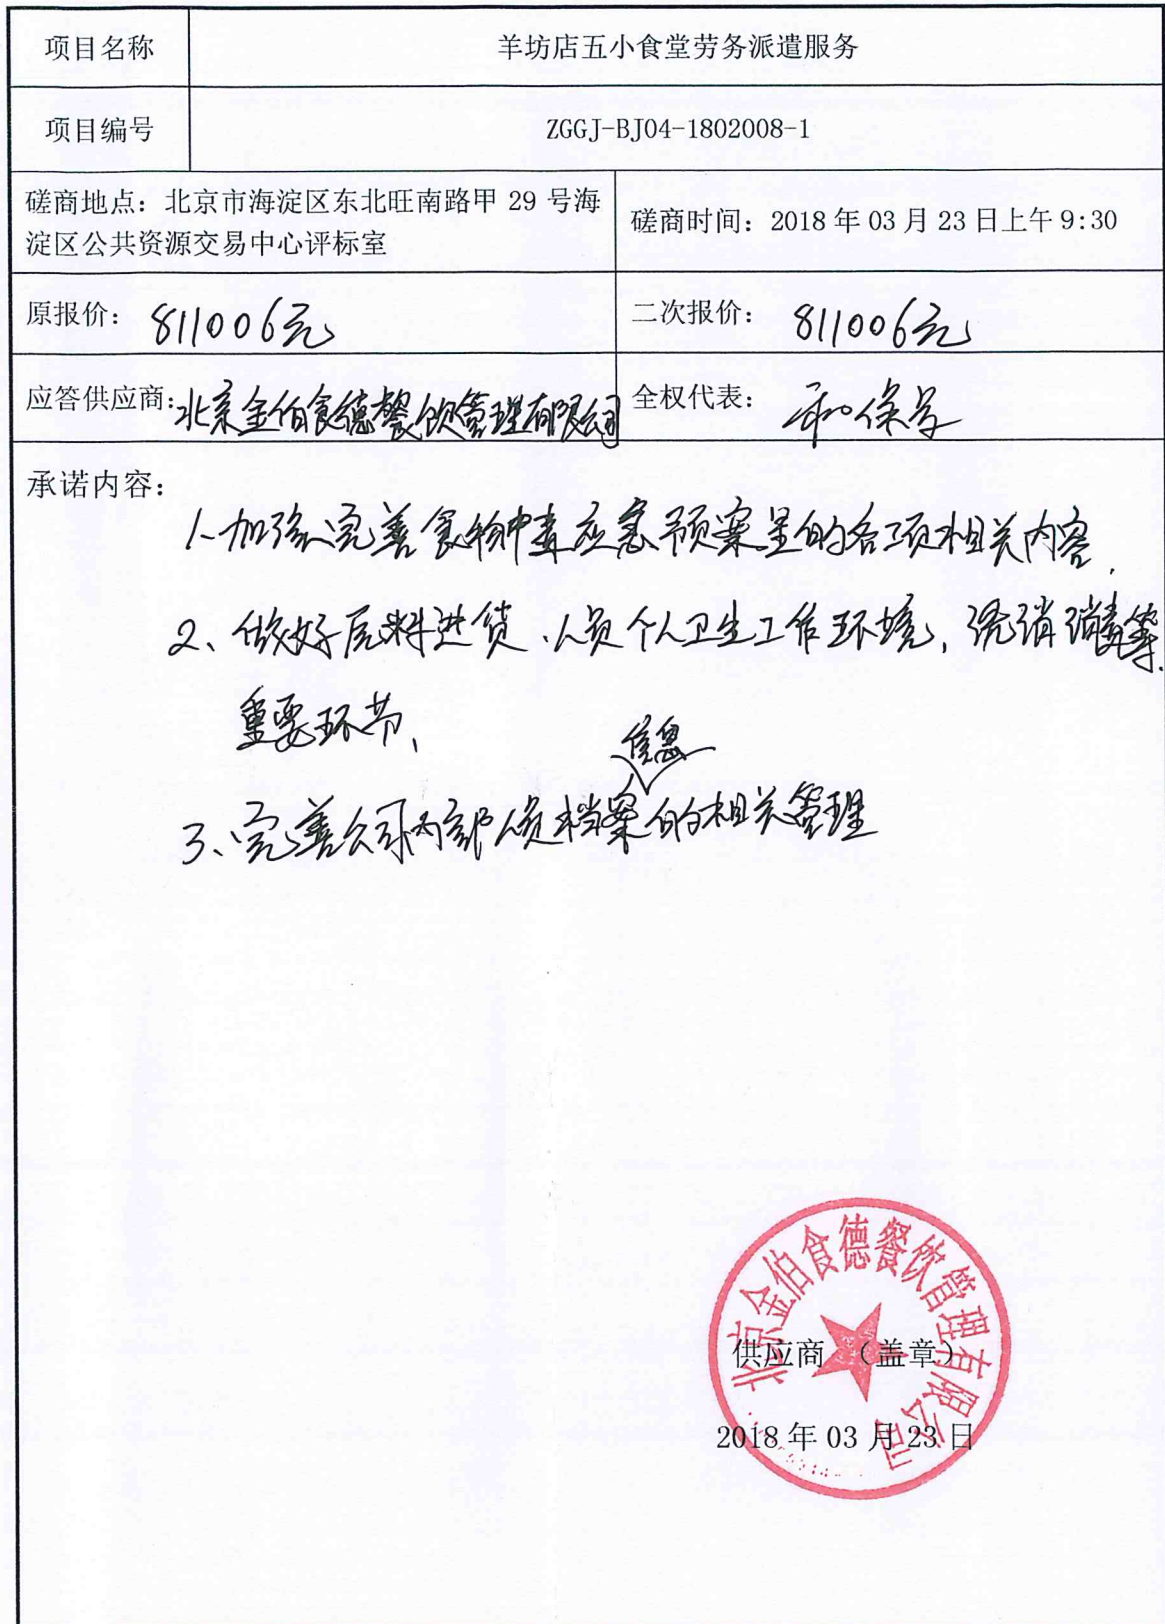 项目名称 羊坊店五小食堂劳务派遣服务
项目编号 ZGGJ-BJ04-1802008-1
磋商地点：北京市海淀区东北旺南路甲 29 号海
淀区公共资源交易中心评标室
磋商时间：2018 年 03 月 23 日上午 9:30
原报价：811006元
二次报价：811006元
应答供应商：北京金伯食德餐饮管理有限公司
全权代表：
承诺内容：
1、加强完善食物中毒应急预案里的各项相关内容，
2、做好原料进货、人员个人卫生工作环境，消毒等
重要环节，
信息
3、完善公司内部人员档案的相关管理
北京金伯食德餐饮管理有限公司
供应商 （盖章）
2018 年 03 月 23 日